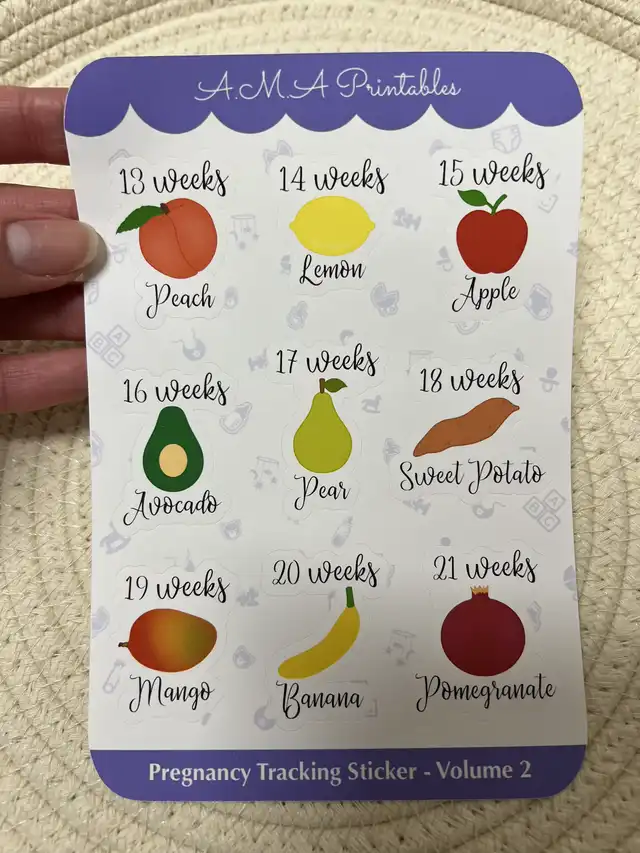 A.M.A Printables
13 weeks
Peach
14 weeks
Lemon
15 weeks
Apple
16 weeks
Avocado
17 weeks
Pear
18 weeks
Sweet Potato
19 weeks
Mango
20 weeks
Banana
21 weeks
Pomegranate
Pregnancy Tracking Sticker - Volume 2